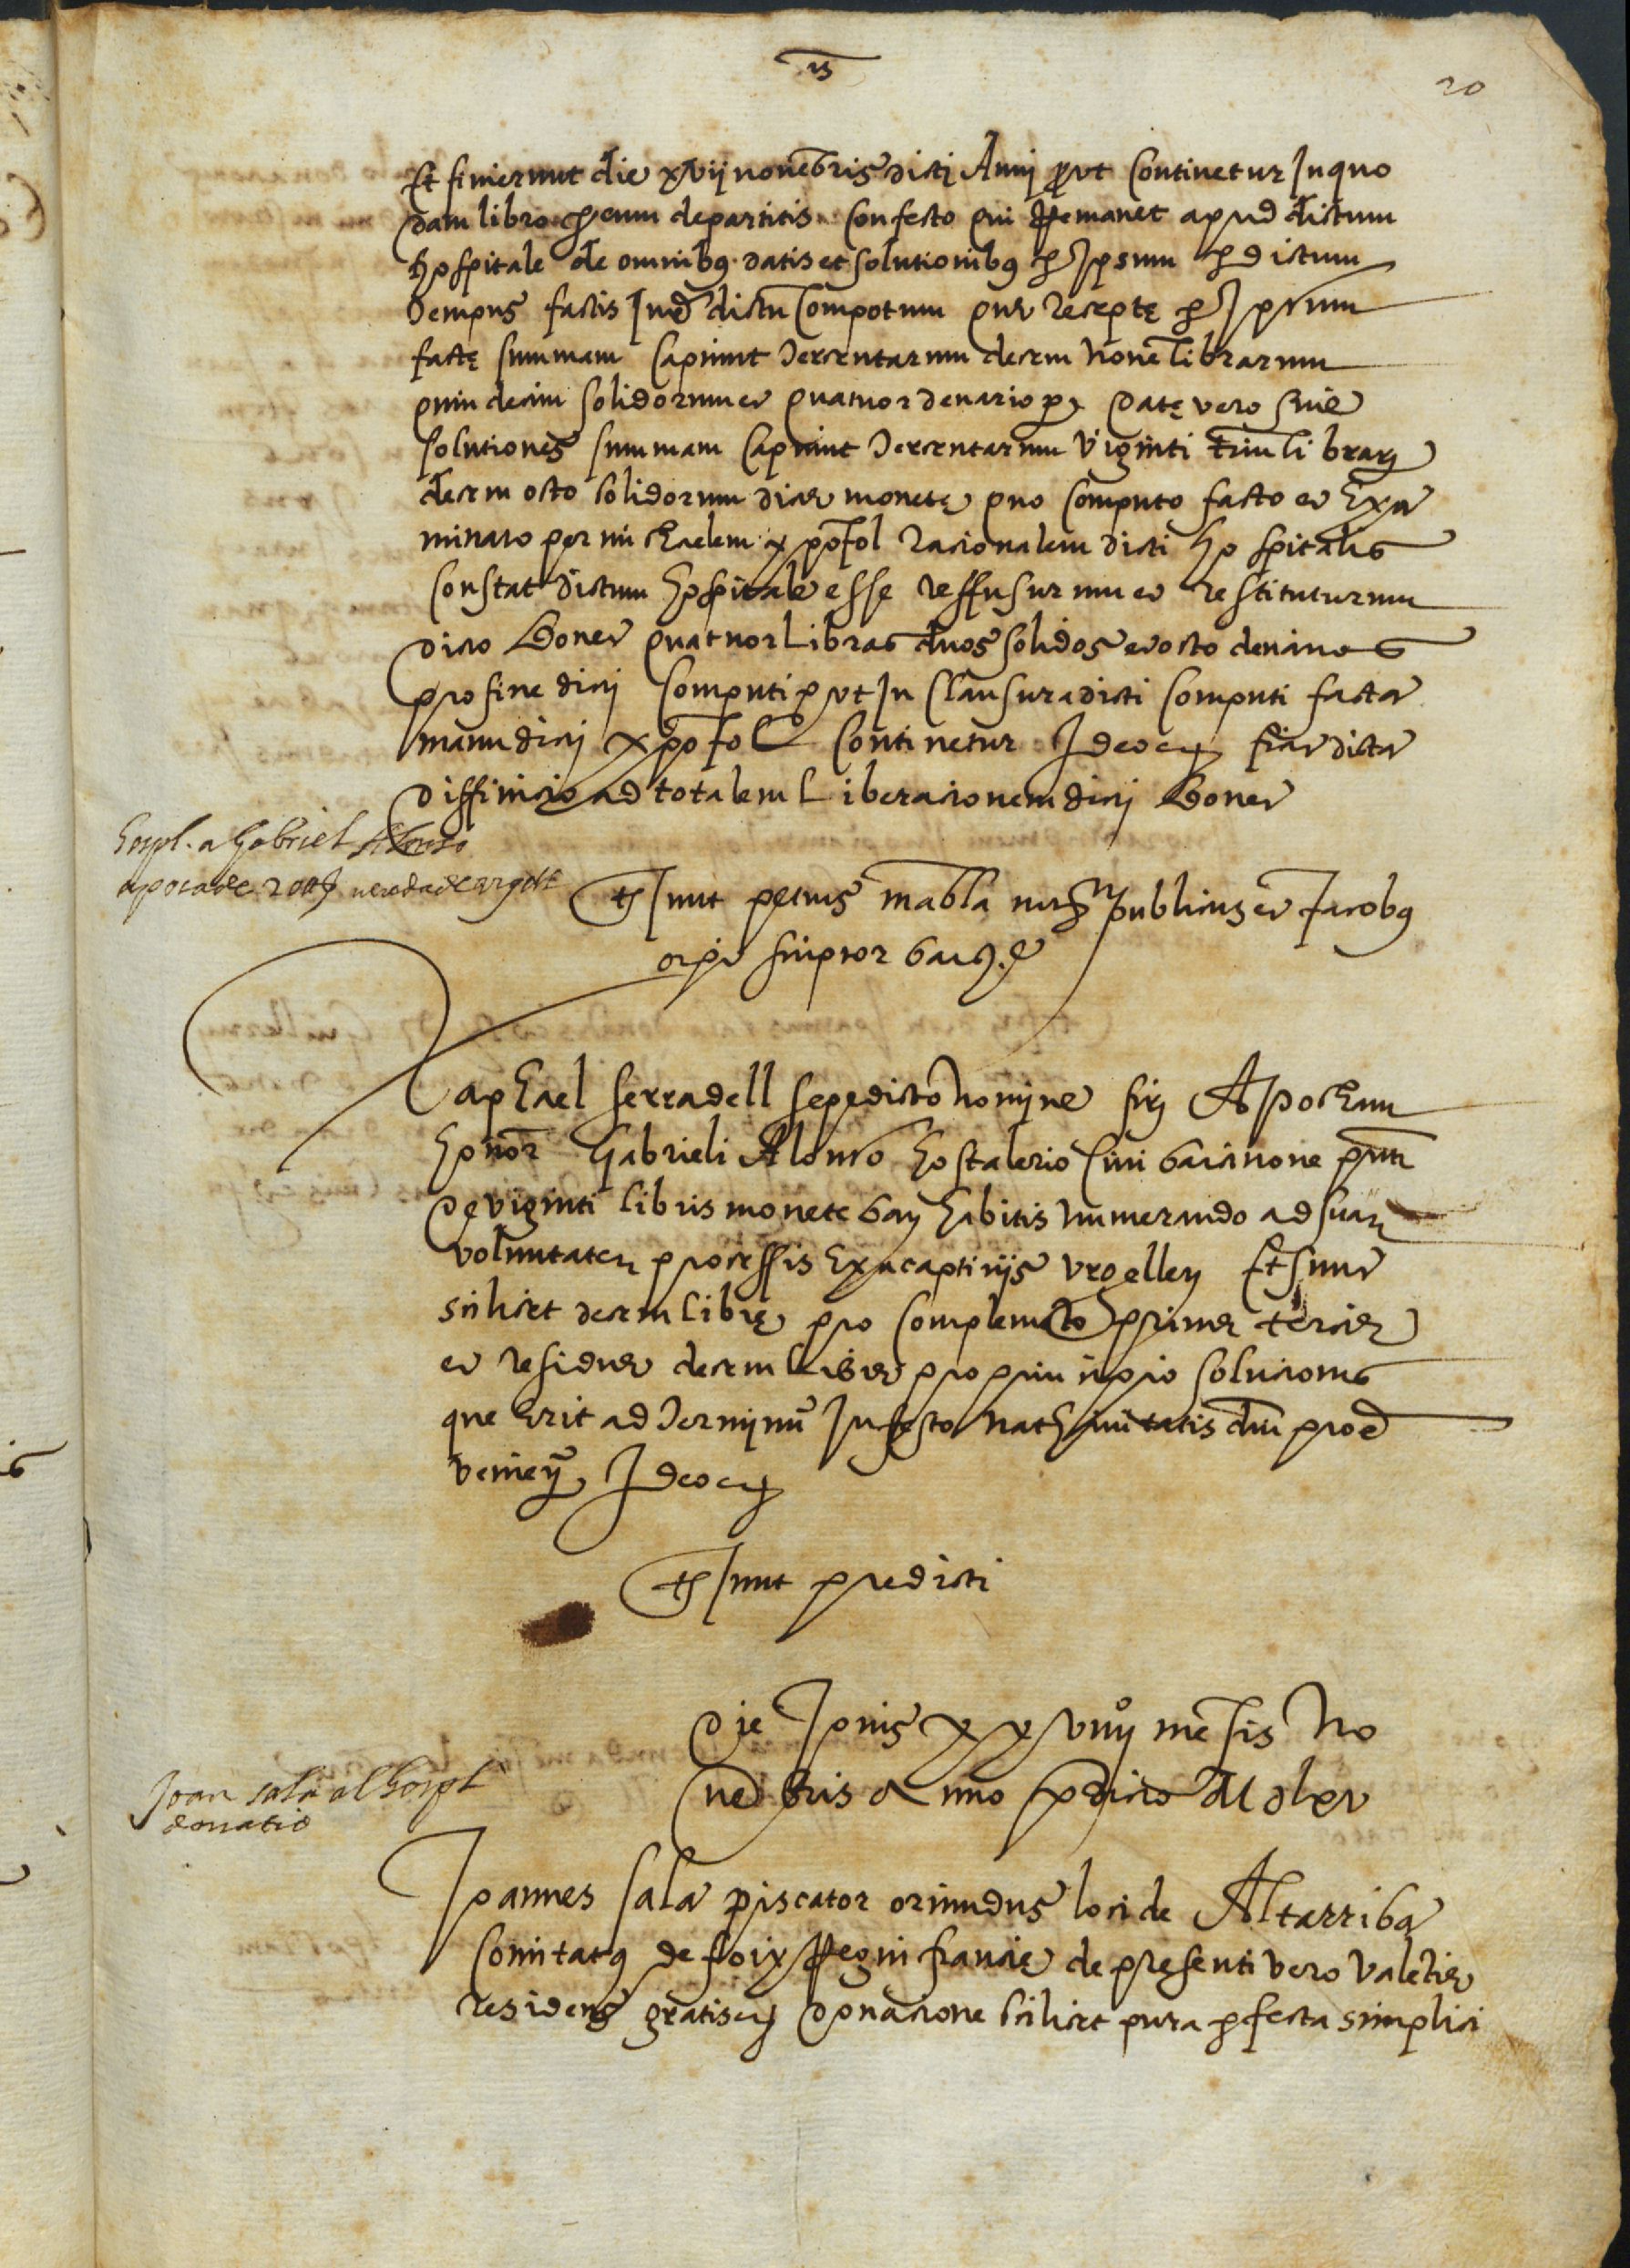 20
Et finierunt die xvij nonēbris dicti Anij put Continetur Inquo
dam libro p eum departitis Confecto qui Remanet apud dictum
hospitale de omnibus datis et solutionibus p Ipsum p dictum
tempus factis Inq dictu Compotum que recepte p Ipsum
facte summam Capiunt tercentarum decem noue librarum
quindecim solidorum et quatuor denariorum Date vero siue
solutiones summam Capiunt tercentarum viginti trium librarum
decem octo solidorum dicte monete quo Computo facto et Exa
minato per michaelem xpofol racionalem dicti hospitalis
Constat dictum hospitale esse reffusurum et restituturum
dicto Boner quatuor libras duos solidos et octo denarios
pro fine dicti Computi put In Clausura dicti Computi facta
manu dicti xpofol Continetur Ideo et fiat dicta
diffinicio ad totalem Liberacionem dicti Boner
hospl. a Gabriel Alonso
apoca de 20 ll
ts sunt petrus mabla publicus et Jacobus
scriptor barc
Raphael serradell sepedicto nomine firmo Apocham
honor Gabrieli Alonso hostalerio Ciui barcinone pnti
De viginti libris monete bar habitis numerando ad suam
voluntatem processis Ex acaptiujs vrgellen Et sunt
scilicet decem libre pro Complemeto prime tercie
et residue decem libre pro principio solucionis
que Erit ad terminu In festo nathiuitatis dni proe
venien Ideo et
ts sunt predicti
Die Jouis xxviiij mēsis No
uēbris Anno pdicto Mdlxv
Joan sala al hospl
donatio
Joannes sala piscator oriundus loci de Altarriba
Comitatus de foix Regni francie de presenti vero valētie
residens gratis et donacione scilicet pura pfecta simplici